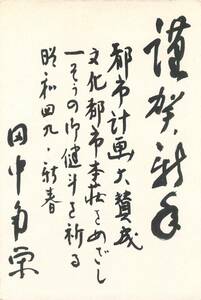 謹賀新年
都市計画大賛成
文化都市本荘をめざし
一そうの御健斗を祈る
昭和四九・新春
田中角栄